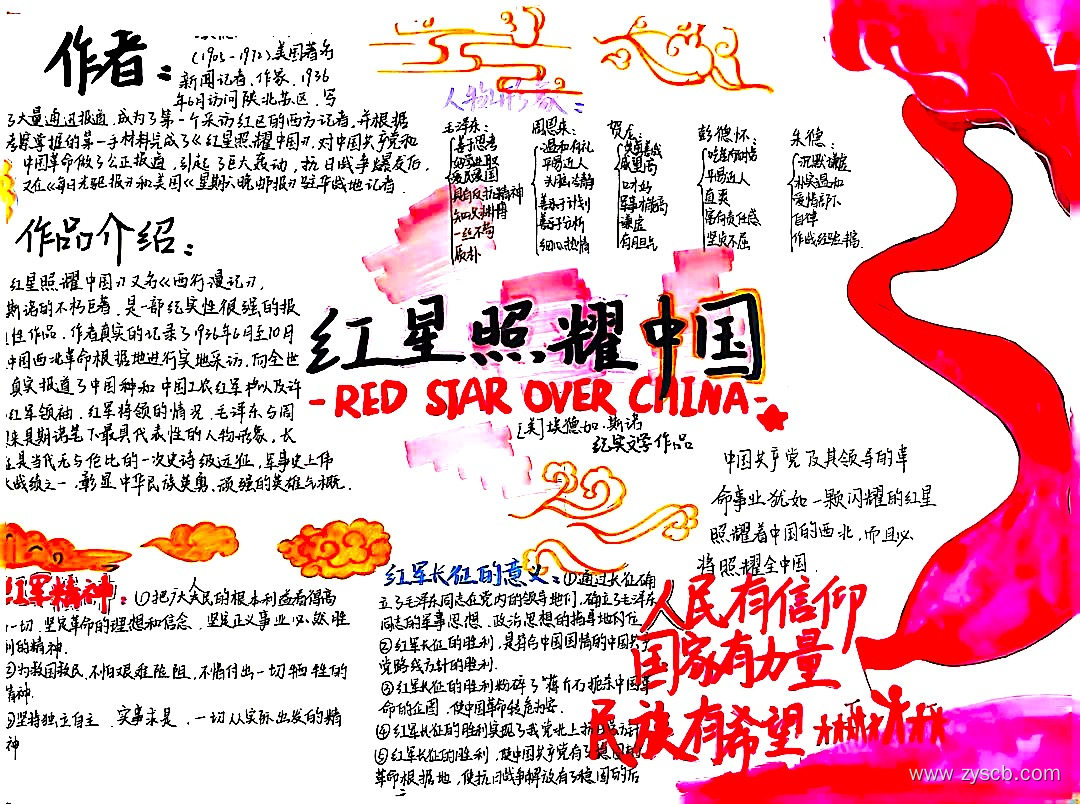 作者：
(1905-1972)美国著名
新闻记者、作家、1936
年6月访问陕北苏区，写
了大量通迅报道，成为了第一个采访红区的西方记者，并根据
考察掌握的第一手材料完成了《红星照耀中国》，对中国共产党和
中国革命做了公正报道，引起了巨大轰动，抗日战争爆发后，
又在《每日先驱报》和美国《星期六晚邮报》驻华战地记者．
人物形象：
毛泽东：
善于思考
爱民爱国
具有反抗精神
知识渊博
一丝不苟
质朴
周恩来：
温和有礼
平易近人
头脑冷静
善于计划
善于分析
细心热情
贺龙：
威望高
口才好
军事才能高
谦虚
有胆气
彭德怀：
平易近人
直爽
富有责任感
坚贞不屈
朱德：
沉默谦虚
朴实温和
爱惜部下
自律
作战经验丰富．
作品介绍：
红星照耀中国》又名《西行漫记》，
斯诺的不朽巨著，是一部纪实性很强的报
性作品．作者真实的记录了1936年6月至10月
中国西北革命根据地进行实地采访，向全世
真实报道了中国种和中国工农红军中以及许
红军领袖、红军将领的情况．毛泽东与周
来是斯诺笔下最具代表性的人物形象，长
征是当代无与伦比的一次史诗级远征，军事史上伟
大战绩之一．彰显中华民族英勇、顽强的英雄气概．
红星照耀中国
-RED STAR OVER CHINA-
[美]埃德加.斯诺
纪实文学作品
中国共产党及其领导的革
命事业犹如一颗闪耀的红星
照耀着中国的西北，而且必
将照耀全中国．
红军精神：(1)把广大人民的根本利益看得高
一切，坚定革命的理想和信念，坚定正义事业必然胜
利的精神．
②为救国救民，不怕艰难险阻，不惜付出一切牺牲的
精神．
③坚持独立自主、实事求是，一切从实际出发的精
神
红军长征的意义：①通过长征确
立了毛泽东同志在党内的领导地们，确立了毛泽东
同志的军事思想、政治思想的指导地位
②红军长征的胜利，是符合中国国情的中国共产
党路线方针的胜利．
③红军长征的胜利粉碎了蒋介石扼杀中国革
命的企图，使中国革命转危为安．
④红军长征的胜利实现了我党北上抗日
⑤红军长征的胜利，使中国共产党有了稳固的
革命根据地，使抗日战争解放有了稳固的后
人民有信仰
国家有力量
民族有希望
www.zyscb.com